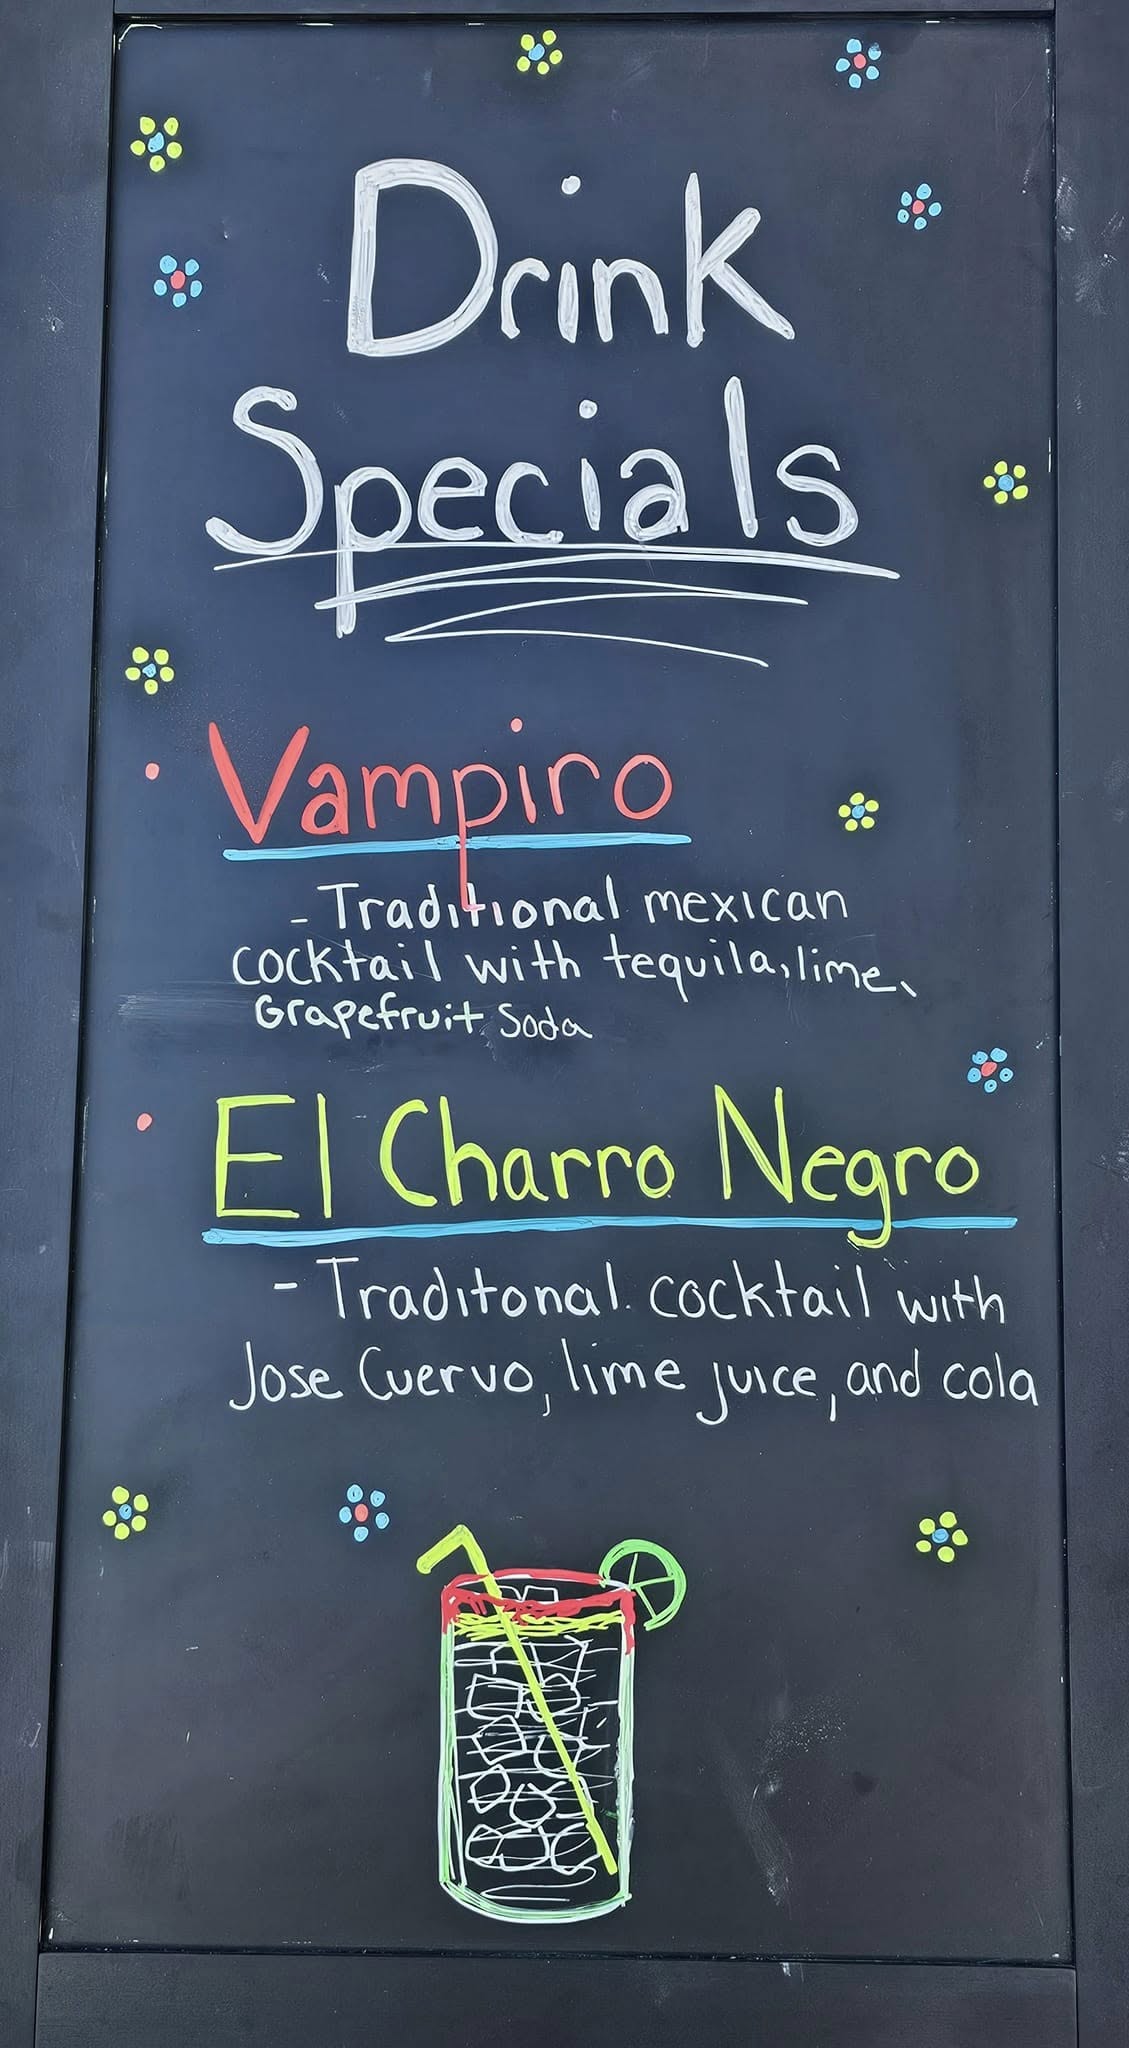 Drink
Specials
Vampiro
- Traditional mexican
cocktail with tequila, lime,
Grapefruit Soda
El Charro Negro
- Traditonal cocktail with
Jose Cuervo, lime juice, and cola